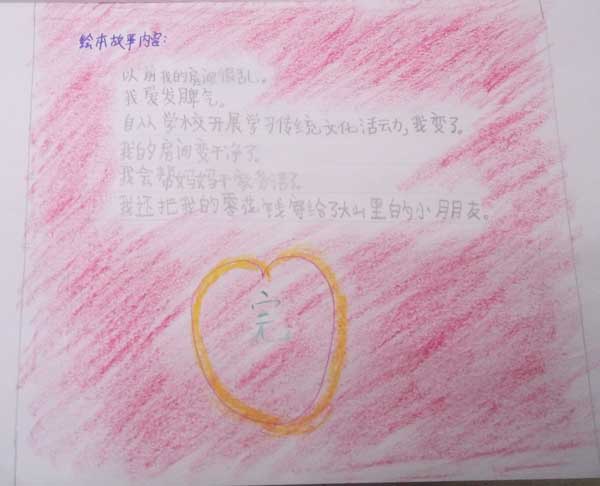 绘本故事内容:
以前我的房间很乱。
我爱发脾气。
自从学校开展学习传统文化活动,我变了。
我的房间变干净了。
我会帮妈妈干家务活了。
我还把我的零花钱寄给了大山里的小朋友。
完。